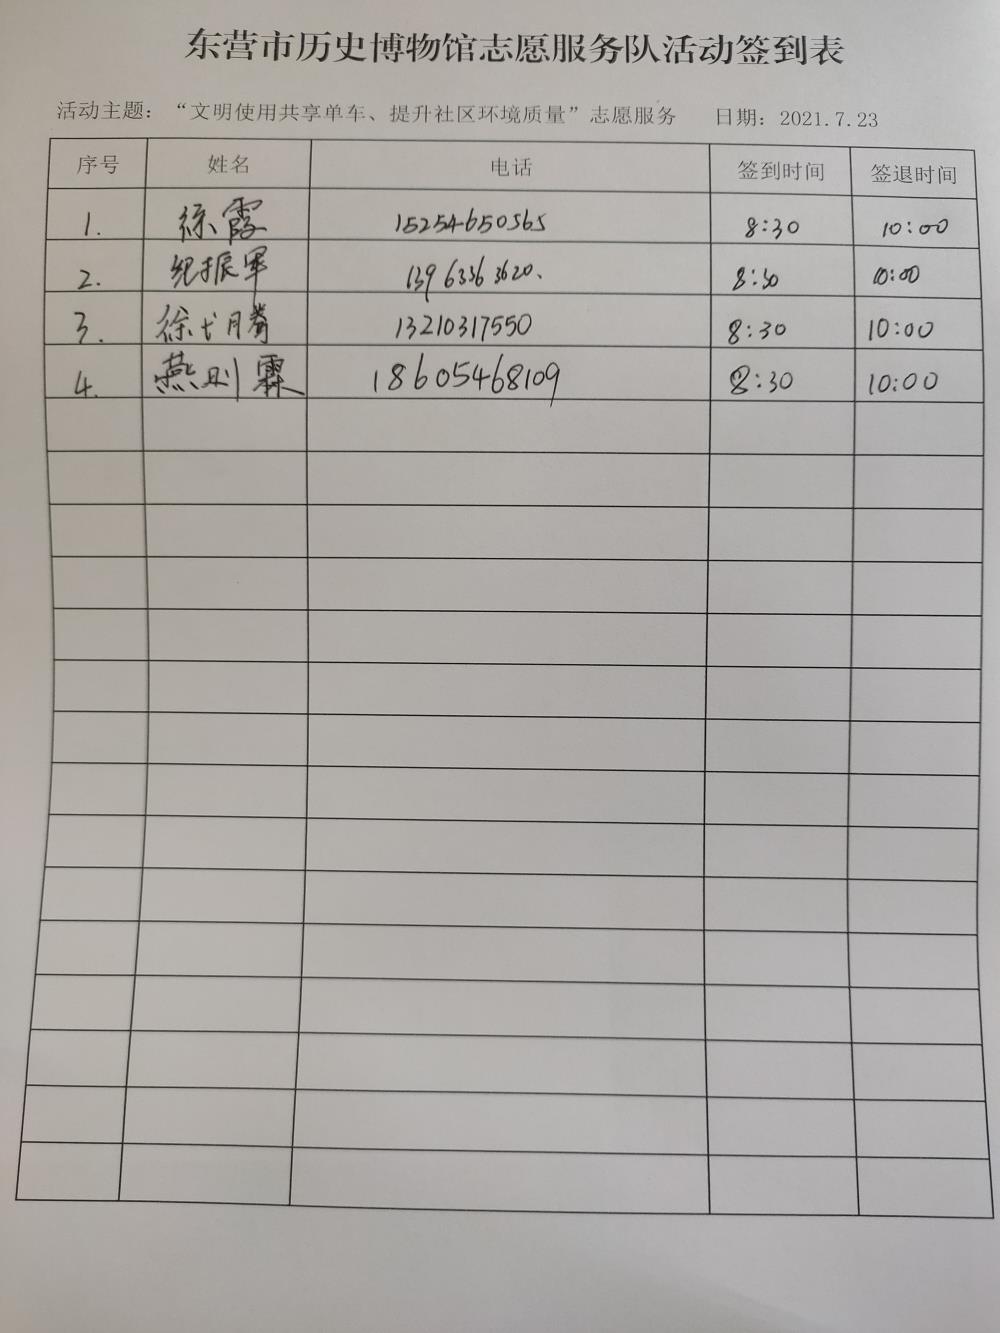 东营市历史博物馆志愿服务队活动签到表
活动主题：“文明使用共享单车、提升社区环境质量”志愿服务 日期：2021.7.23
序号 姓名 电话 签到时间 签退时间
1. 徐霞 15254650565 8:30 10:00
2. 纪振军 13963363620. 8:30 10:00
3. 徐 13210317550 8:30 10:00
4. 燕则霖 18605468109 8:30 10:00